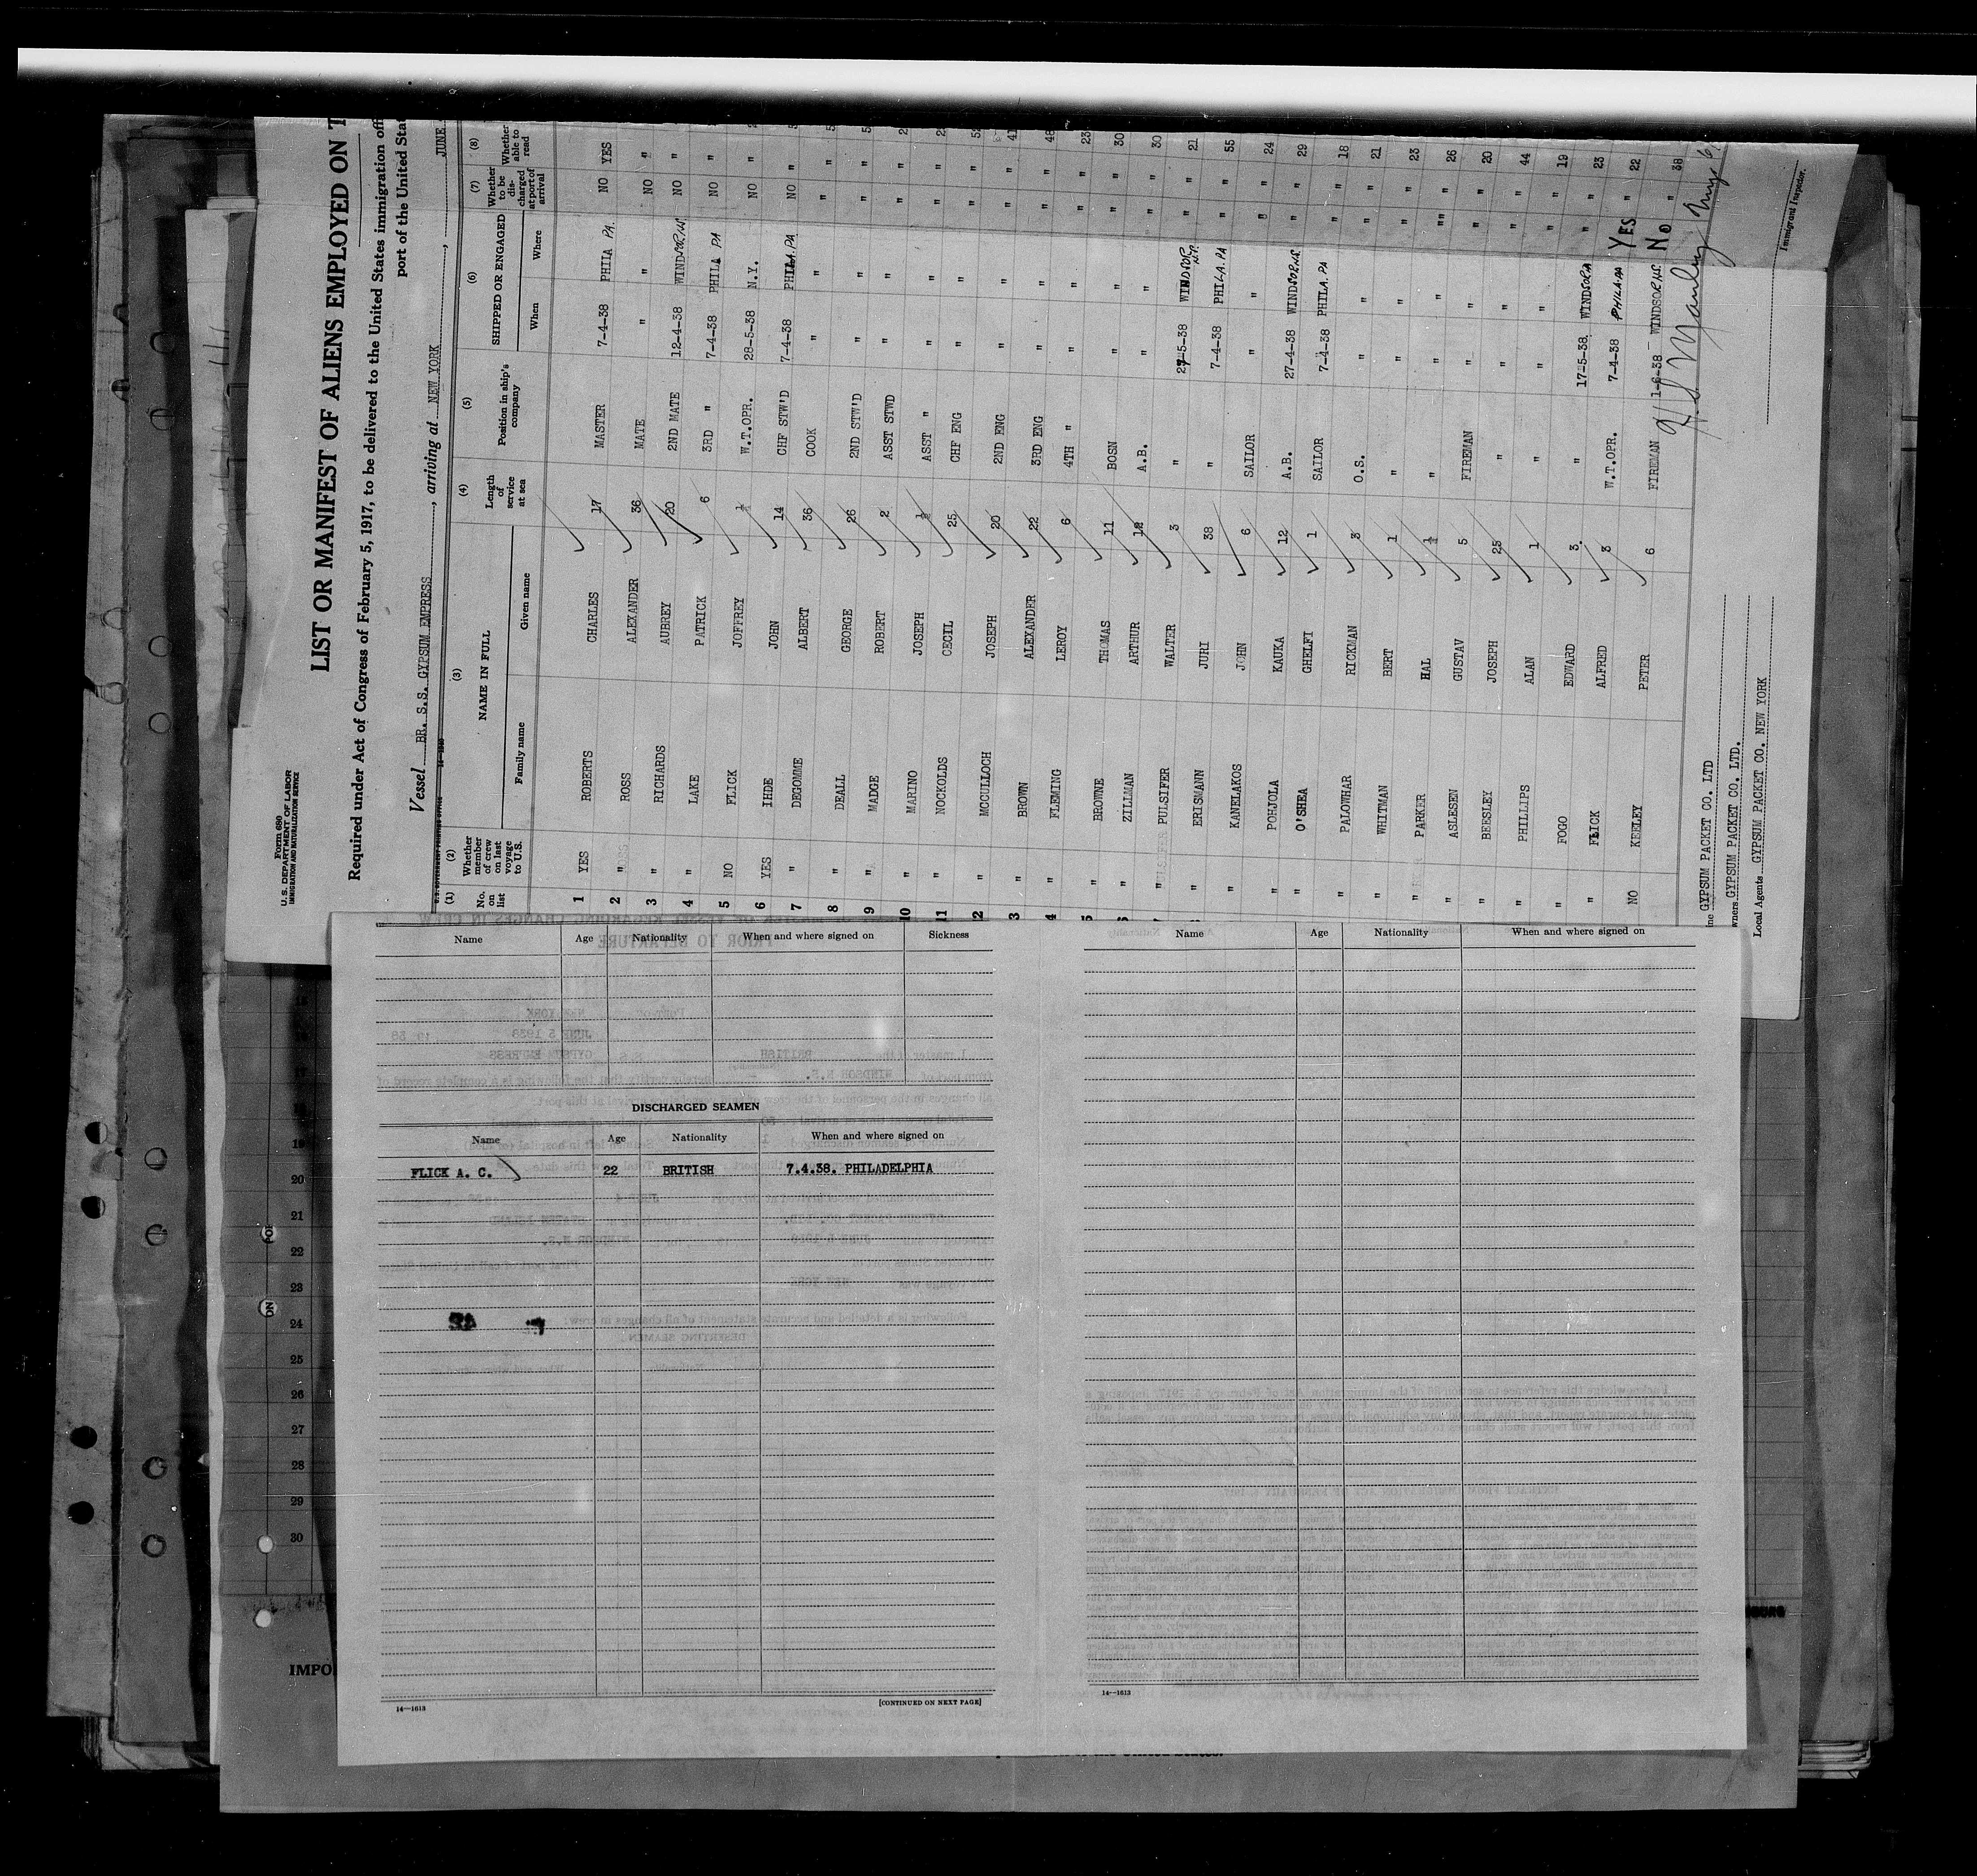 Form 680
U. S. DEPARTMENT OF LABOR
IMMIGRATION AND NATURALIZATION SERVICE
LIST OR MANIFEST OF ALIENS EMPLOYED ON T
Required under Act of Congress of February 5, 1917, to be delivered to the United States immigration off
port of the United Stat
Vessel BR. S.S. GYPSUM EMPRESS, arriving at NEW YORK, JUNE
(1) No. on list (2) Whether member of crew on last voyage to U.S. (3) NAME IN FULL Family name Given name (4) Length of service at sea (5) Position in ship's company (6) SHIPPED OR ENGAGED When Where (7) Whether to be discharged at port of arrival (8) Whether able to read
1 YES ROBERTS CHARLES 17 MASTER 7-4-38 PHILA PA. NO YES
2 " ROSS ALEXANDER 36 MATE " " NO "
3 " RICHARDS AUBREY 20 2ND MATE 12-4-38 WINDSOR, N.S. NO "
4 " LAKE PATRICK 6 3RD " 7-4-38 PHILA PA NO "
5 NO FLICK JOFFREY ½ W.T.OPR. 28-5-38 N.Y. NO "
6 YES IHDE JOHN 14 CHF STW'D 7-4-38 PHILA. PA NO "
7 " DEGOMME ALBERT 36 COOK " " " "
8 " DEALL GEORGE 26 2ND STW'D " " " "
9 " MADGE ROBERT 2 ASST STWD " " " "
10 " MARINO JOSEPH ½ ASST " " " " "
11 " NOCKOLDS CECIL 25 CHF ENG " " " "
2 " MCCULLOCH JOSEPH 20 2ND ENG " " " "
3 " BROWN ALEXANDER 22 3RD ENG " " " " 41
4 " FLEMING LEROY 6 4TH " " " " " 48
5 " BROWNE THOMAS 11 BOSN " " " " 23
6 " ZILLMAN ARTHUR 12 A.B. " " " " 30
PULSIFER WALTER 3 " 27-5-38 WINDSOR N.S. " " 30
" ERISMANN JURI 38 " 7-4-38 PHILA. PA " " 21
" KANELAKOS JOHN 6 SAILOR " " " " 55
" POHJOLA KAUKA 12 A.B. 27-4-38 WINDSOR N.S. " " 24
" O'SHEA GHELFI 1 SAILOR 7-4-38 PHILA. PA " " 29
" PALOWHAR RICKMAN 3 O.S. " " " " 18
" WHITMAN BERT 1 " " " " " 21
" PARKER HAL ½ " " " " " 23
" ASLESEN GUSTAV 5 FIREMAN " " " " 26
" BEESLEY JOSEPH 25 " " " " " 20
" PHILLIPS ALAN 1 " " " " " 44
" FOGO EDWARD 3 " 17-5-38 WINDSOR " " 19
" FLICK ALFRED 3 W.T.OPR. 7-4-38 PHILA PA YES " 23
NO KEELEY PETER 6 FIREMAN 1-6-38 WINDSOR N.S. NO " 22
38
GYPSUM PACKET CO. LTD
wners GYPSUM PACKET CO. LTD.
Local Agents GYPSUM PACKET CO. NEW YORK
Immigrant Inspector.
Name Age Nationality When and where signed on Sickness
DISCHARGED SEAMEN
Name Age Nationality When and where signed on
FLICK A. C. 22 BRITISH 7.4.38. PHILADELPHIA
14—1613
[CONTINUED ON NEXT PAGE]
Name Age Nationality When and where signed on
14—1613
19
20
21
22
23
24
25
26
27
28
29
30
IMPO